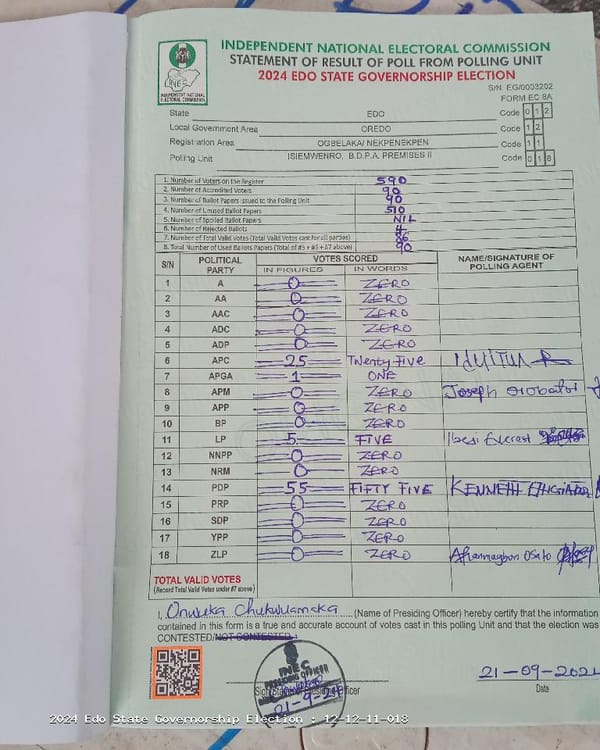 INDEPENDENT NATIONAL ELECTORAL COMMISSION
STATEMENT OF RESULT OF POLL FROM POLLING UNIT
2024 EDO STATE GOVERNORSHIP ELECTION
INEC
INDEPENDENT NATIONAL ELECTORAL COMMISSION
S/N EG/0003202
FORM EC 8A
State EDO Code 0 1 2
Local Government Area OREDO Code 1 2
Registration Area OGBELAKA/ NEKPENEKPEN Code 1 1
Polling Unit ISIEMWENRO, B.D.P.A. PREMISES II Code 0 1 8
1. Number of Voters on the Register 590
2. Number of Accredited Voters 90
3. Number of Ballot Papers issued to the Polling Unit 90
4. Number of Unused Ballot Papers 510
5. Number of Spoiled Ballot Papers NIL
6. Number of Rejected Ballots 4
7. Number of Total Valid Votes (Total Valid Votes cast for all parties) 86
8. Total Number of Used Ballots Papers (Total of #5 + #6 + #7 above) 90
S/N POLITICAL PARTY VOTES SCORED NAME/SIGNATURE OF POLLING AGENT
IN FIGURES IN WORDS
1 A 0 ZERO
2 AA 0 ZERO
3 AAC 0 ZERO
4 ADC 0 ZERO
5 ADP 0 ZERO
6 APC 25 Twenty Five
7 APGA 1 ONE
8 APM 0 ZERO Joseph
9 APP 0 ZERO
10 BP 0 ZERO
11 LP 5 FIVE Everest
12 NNPP 0 ZERO
13 NRM 0 ZERO
14 PDP 55 FIFTY FIVE KENNETH
15 PRP 0 ZERO
16 SDP 0 ZERO
17 YPP 0 ZERO
18 ZLP 0 ZERO Osato
TOTAL VALID VOTES
(Record Total Valid Votes under #7 above)
I, Chukwuemeka (Name of Presiding Officer) hereby certify that the information
contained in this form is a true and accurate account of votes cast in this polling unit and that the election was
CONTESTED/NOT CONTESTED.
INEC
PRESIDING OFFICER
21-9-24
Officer
21-09-202
Date
2024 Edo State Governorship Election : 12-12-11-018